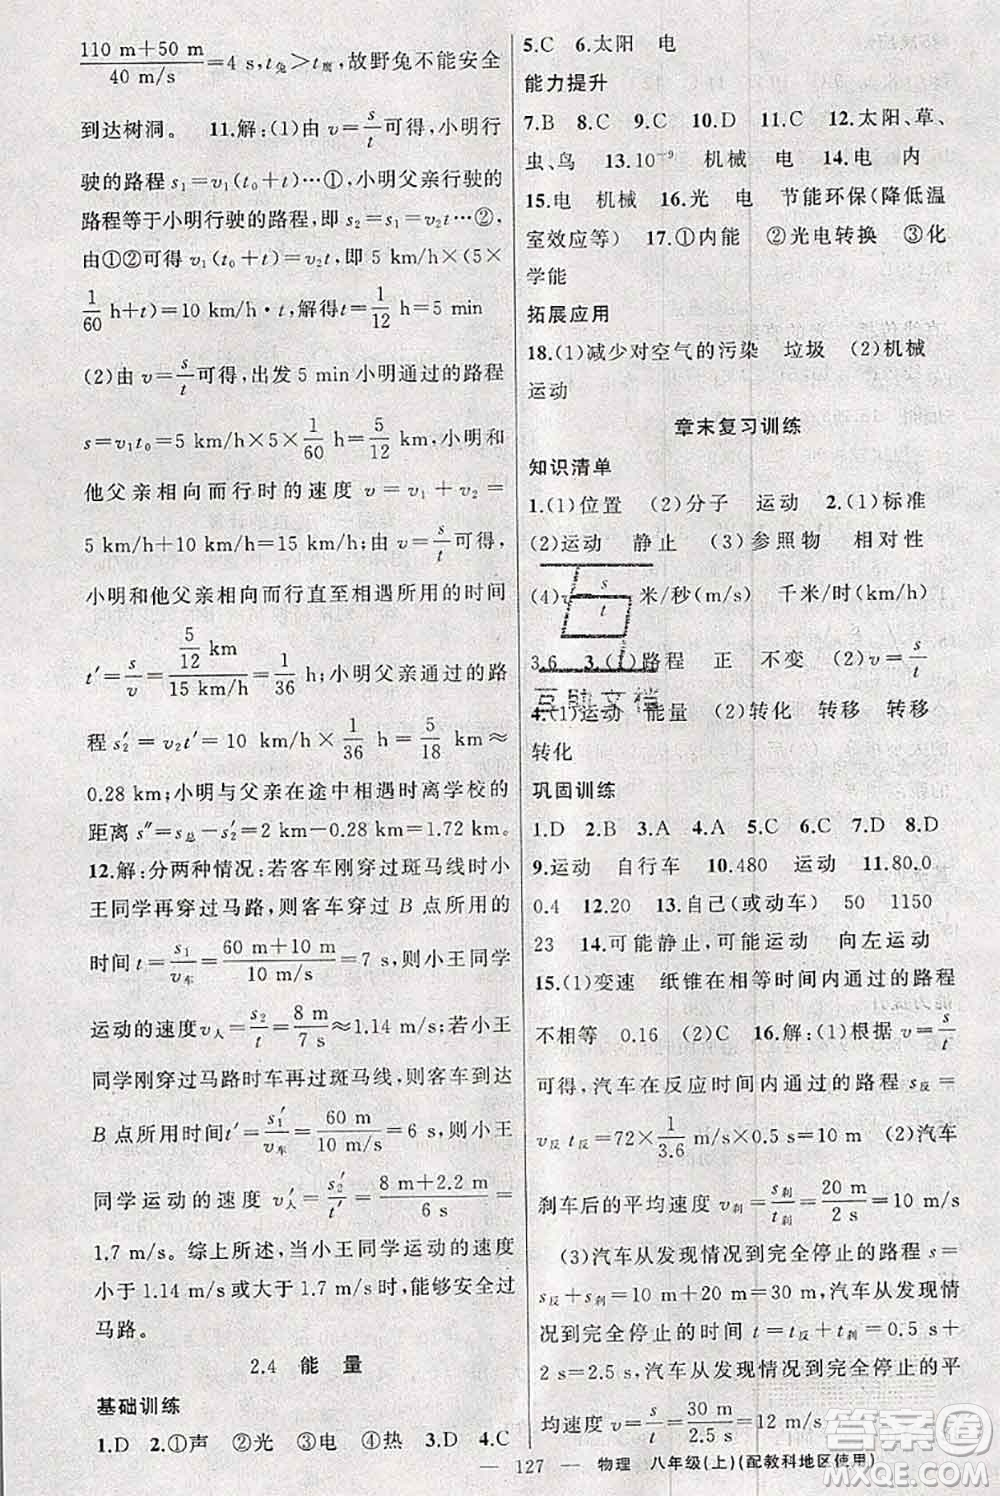 (110 m+50 m)/(40 m/s)=4 s,t兔>t鹰,故野兔不能安全
到达树洞。 11.解:(1)由 v=s/t可得,小明行
驶的路程 s₁=v₁(t₀+t)…①,小明父亲行驶的
路程等于小明行驶的路程,即 s₂=s₁=v₂t…②,
由①②可得 v₁(t₀+t)=v₂t,即 5 km/h×(5×
1/60 h+t)=10 km/h·t,解得t=1/12 h=5 min
(2)由 v=s/t可得,出发 5 min小明通过的路程
s=v₁t₀=5 km/h×5×1/60 h=5/12 km,小明和
他父亲相向而行时的速度 v=v₁+v₂=
5 km/h+10 km/h=15 km/h,由v=s/t可得,
小明和他父亲相向而行直至相遇所用的时间
t′=s/v=(5/12 km)/(15 km/h)=1/36 h,小明父亲通过的路
程 s₂′=v₂t′=10 km/h×1/36 h=5/18 km≈
0.28 km,小明与父亲在途中相遇时离学校的
距离 s″=s总-s₂′=2 km-0.28 km=1.72 km。
12.解:分两种情况:若客车刚穿过斑马线时小
王同学再穿过马路,则客车穿过 B 点所用的
时间t=s₁/v车=(60 m+10 m)/(10 m/s)=7 s,则小王同学
运动的速度v人=s₂/t=8 m/7 s≈1.14 m/s;若小王
同学刚穿过马路时车再过斑马线,则客车到达
B 点所用时间t′=s₁′/v车=60 m/(10 m/s)=6 s,则小王
同学运动的速度 v人′=s₂′/t′=(8 m+2.2 m)/6 s=
1.7 m/s。综上所述,当小王同学运动的速度
小于 1.14 m/s或大于 1.7 m/s时,能够安全过
马路。
2.4 能 量
基础训练
1.D 2.①声 ②光 ③电 ④热 3.D 4.C
5.C 6.太阳 电
能力提升
7.B 8.C 9.C 10.D 11.C 12.太阳、草、
虫、鸟 13.10⁻⁹ 机械 电 14.电 内
15.电 机械 16.光 电 节能环保(降低温
室效应等) 17.①内能 ②光电转换 ③化
学能
拓展应用
18.(1)减少对空气的污染 垃圾 (2)机械
运动
章末复习训练
知识清单
1.(1)位置 (2)分子 运动 2.(1)标准
(2)运动 静止 (3)参照物 相对性
(4)v=s/t 米/秒(m/s) 千米/时(km/h)
3.6 3.(1)路程 正 不变 (2)v=s/t
4.(1)运动 能量 (2)转化 转移 转移
转化
巩固训练
1.D 2.B 3.A 4.A 5.C 6.C 7.D 8.D
9.运动 自行车 10.480 运动 11.80.0
0.4 12.20 13.自己(或动车) 50 1150
23 14.可能静止,可能运动 向左运动
15.(1)变速 纸锥在相等时间内通过的路程
不相等 0.16 (2)C 16.解:(1)根据 v=s/t
可得,汽车在反应时间内通过的路程 s反=
v反t反=72×1/3.6 m/s×0.5 s=10 m (2)汽车
刹车后的平均速度 v刹=s刹/t刹=20 m/2 s=10 m/s
(3)汽车从发现情况到完全停止的路程 s=
s反+s刹=10 m+20 m=30 m,汽车从发现情
况到完全停止的时间 t=t反+t刹=0.5 s+
2 s=2.5 s,汽车从发现情况到完全停止的平
均速度v=s/t=30 m/2.5 s=12 m/s
— 127 — 物理 八年级(上)(配教科地区使用)
答案圈
MXQE.COM